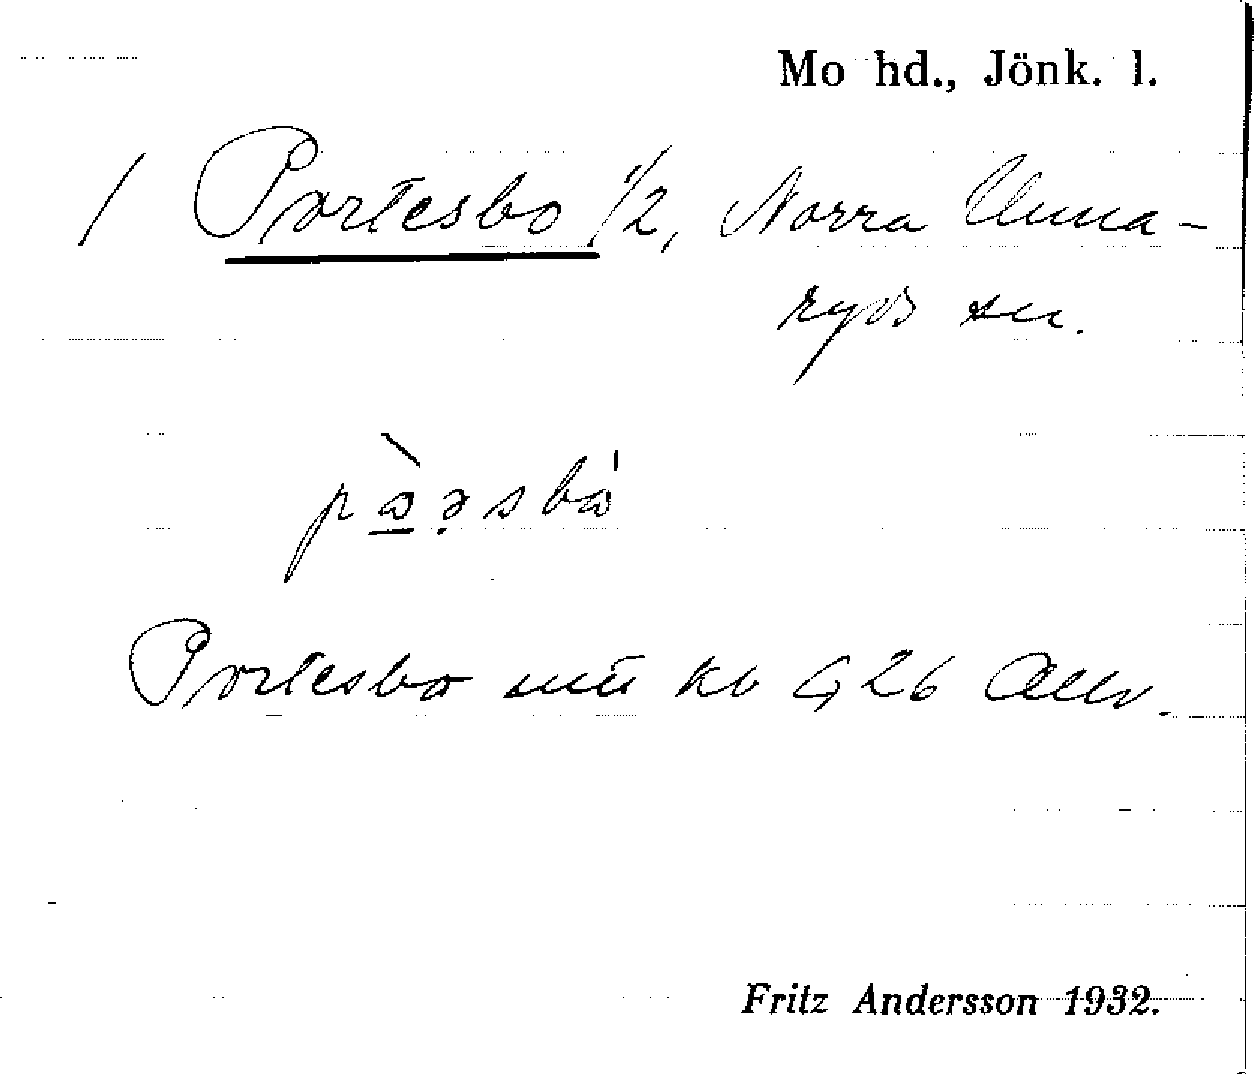 Mo hd., Jönk. l.
/ Portesbo 1/2, Norra Unna-
ryds sn.
Portesbo mtl kb 26
Fritz Andersson 1932.